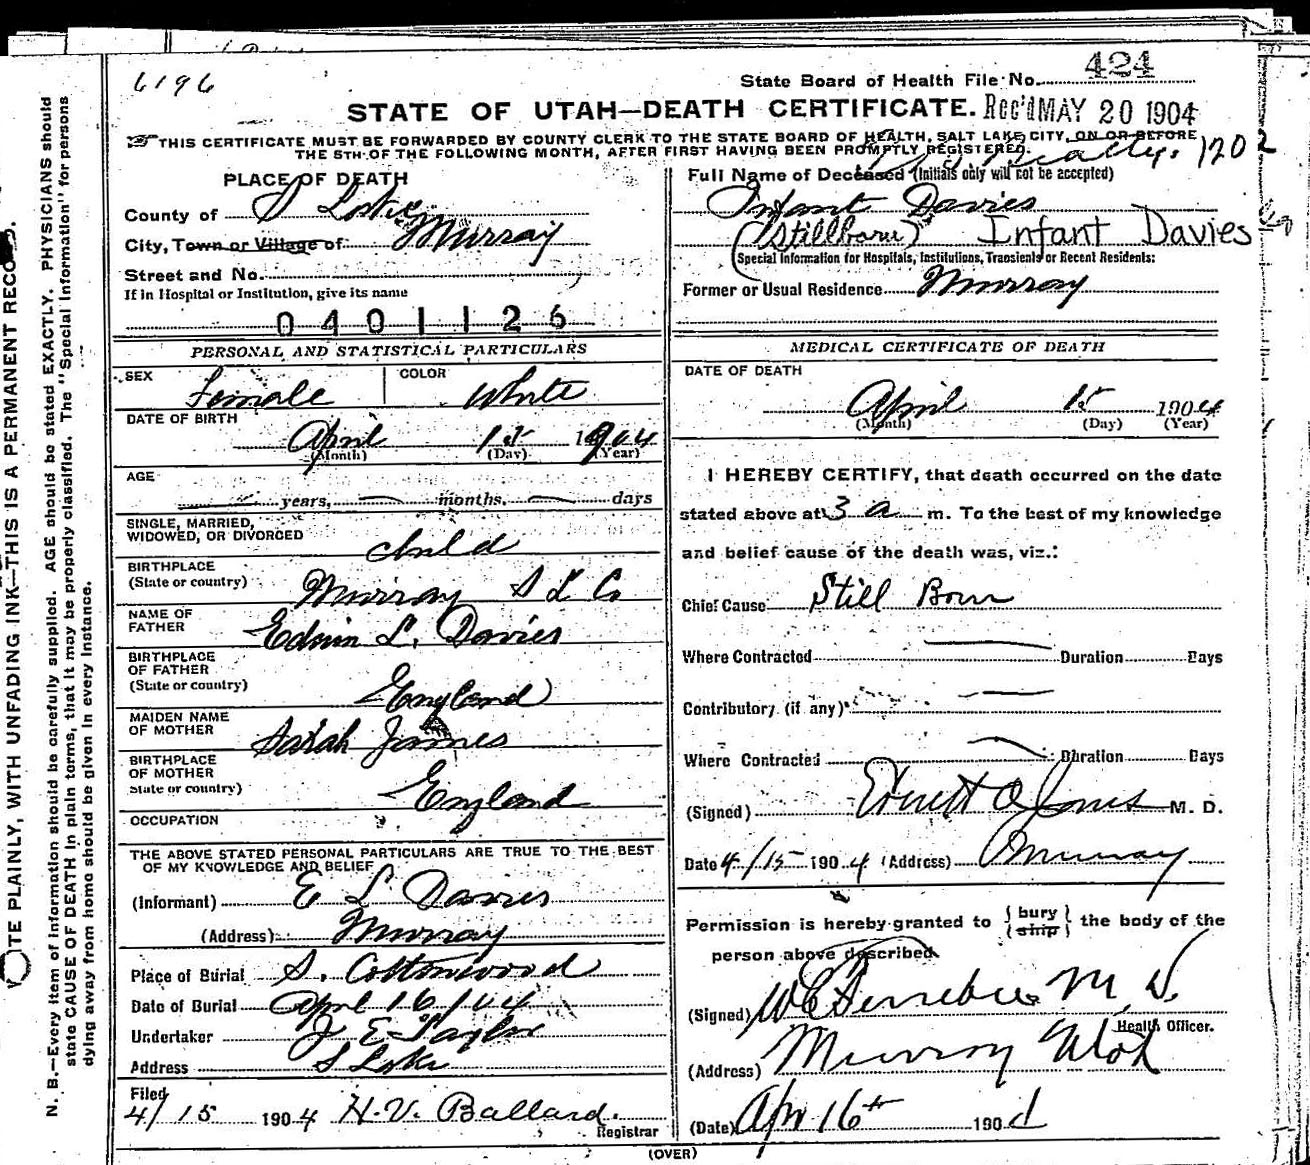 6196
State Board of Health File No. 424
STATE OF UTAH—DEATH CERTIFICATE. Rec'd MAY 20 1904
THIS CERTIFICATE MUST BE FORWARDED BY COUNTY CLERK TO THE STATE BOARD OF HEALTH, SALT LAKE CITY, ON OR BEFORE
THE 5TH OF THE FOLLOWING MONTH, AFTER FIRST HAVING BEEN PROMPTLY REGISTERED.
1202
PLACE OF DEATH
County of S Lake
City, Town or Village of Murray
Street and No.
If in Hospital or Institution, give its name
0401126
Full Name of Deceased (Initials only will not be accepted)
Infant Davies
(Stillborn) Infant Davies
Special Information for Hospitals, Institutions, Transients or Recent Residents:
Former or Usual Residence Murray
PERSONAL AND STATISTICAL PARTICULARS
SEX Female COLOR White
DATE OF BIRTH
April 15 1904
(Month) (Day) (Year)
AGE
years, months, days
SINGLE, MARRIED,
WIDOWED, OR DIVORCED child
BIRTHPLACE
(State or country) Murray S L Co
NAME OF
FATHER Edwin L. Davies
BIRTHPLACE
OF FATHER
(State or country) England
MAIDEN NAME
OF MOTHER Sarah James
BIRTHPLACE
OF MOTHER
State or country) England
OCCUPATION
THE ABOVE STATED PERSONAL PARTICULARS ARE TRUE TO THE BEST
OF MY KNOWLEDGE AND BELIEF
(Informant) E L Davies
(Address) Murray
Place of Burial S. Cottonwood
Date of Burial April 16/04
Undertaker J E Taylor
Address S Lake
Filed
4/15 1904 H. V. Ballard.
Registrar
MEDICAL CERTIFICATE OF DEATH
DATE OF DEATH
April 15 1904
(Month) (Day) (Year)
I HEREBY CERTIFY, that death occurred on the date
stated above at 3 a m. To the best of my knowledge
and belief cause of the death was, viz.:
Chief Cause Still Born
Where Contracted Duration Days
Contributory (if any)
Where Contracted Duration Days
(Signed) Everett O Jones M. D.
Date 4/15 1904 (Address) Murray
Permission is hereby granted to { bury ship } the body of the
person above described.
(Signed) W C Ferrebee M. D.
Health Officer.
(Address) Murray Utah
(Date) Apr 16th 1904
(OVER)
WRITE PLAINLY, WITH UNFADING INK—THIS IS A PERMANENT RECORD.
N. B.—Every item of information should be carefully supplied. AGE should be stated EXACTLY. PHYSICIANS should
state CAUSE OF DEATH in plain terms, that it may be properly classified. The "Special Information" for persons
dying away from home should be given in every instance.